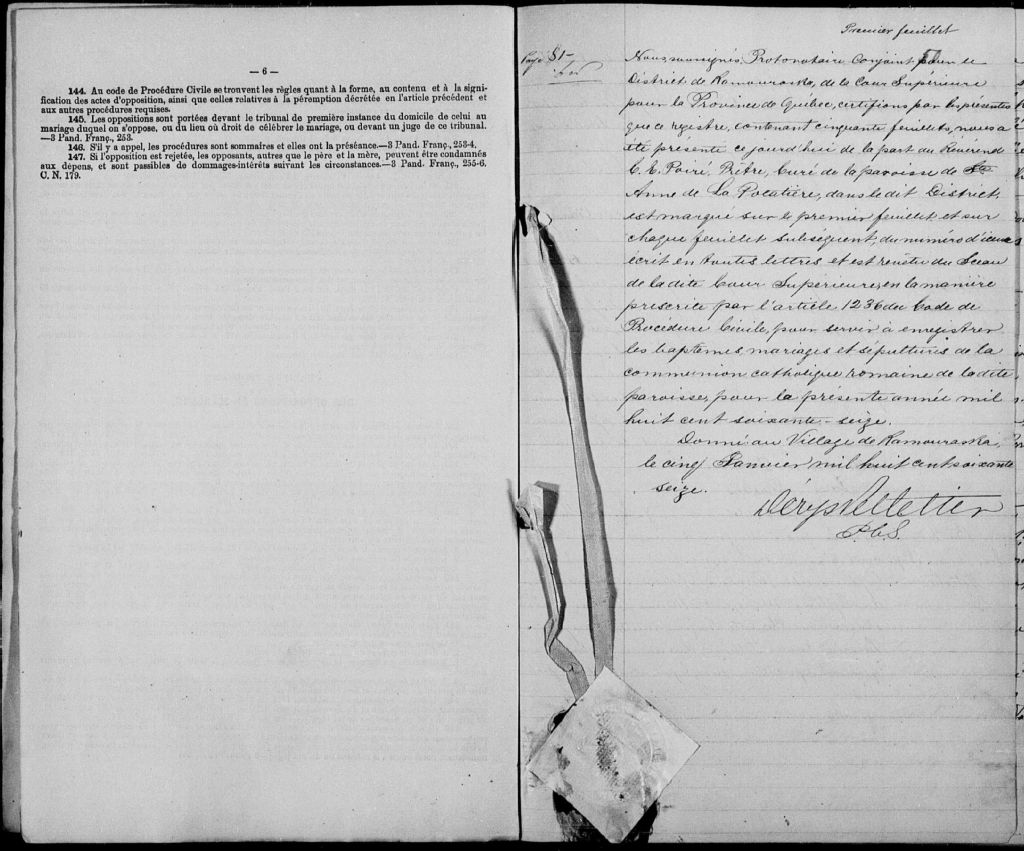 — 6 —
144. Au code de Procédure Civile se trouvent les règles quant à la forme, au contenu et à la signi-
fication des actes d'opposition, ainsi que celles relatives à la péremption décrétée en l'article précédent et
aux autres procédures requises.
145. Les oppositions sont portées devant le tribunal de première instance du domicile de celui au
mariage duquel on s'oppose, ou du lieu où droit de célébrer le mariage, ou devant un juge de ce tribunal.
—3 Pand. Franç., 253.
146. S'il y a appel, les procédures sont sommaires et elles ont la préséance.—3 Pand. Franç., 253-4.
147. Si l'opposition est rejetée, les opposants, autres que le père et la mère, peuvent être condamnés
aux dépens, et sont passibles de dommages-intérêts suivant les circonstances.—3 Pand. Franç., 255-6.
C. N. 179.
Premier feuillet
Page 51—
Nous, soussignés, Protonotaire Conjoint pour le
District de Kamouraska, de la Cour Supérieure
pour la Province de Québec, certifions par les présentes
que ce régistre, contenant cinquante feuillets, nous a
été présenté ce jourd'hui de la part du Révérend
C. E. Poiré, Prêtre, Curé de la paroisse de Ste
Anne de La Pocatière, dans le dit District,
est marqué sur le premier feuillet et sur
chaque feuillet subséquent, du numéro d'iceux
écrit en toutes lettres et est revêtu du Sceau
de la dite Cour Supérieure, en la manière
prescrite par l'article 1236 du Code de
Procédure Civile, pour servir à enregistrer
les baptêmes, mariages et sépultures de la
communion catholique romaine de la dite
paroisse, pour la présente année mil
huit cent soixante-seize.
Donné au Village de Kamouraska,
le cinq Janvier mil huit cent soixante
seize.
Pelletier
P.C.S.